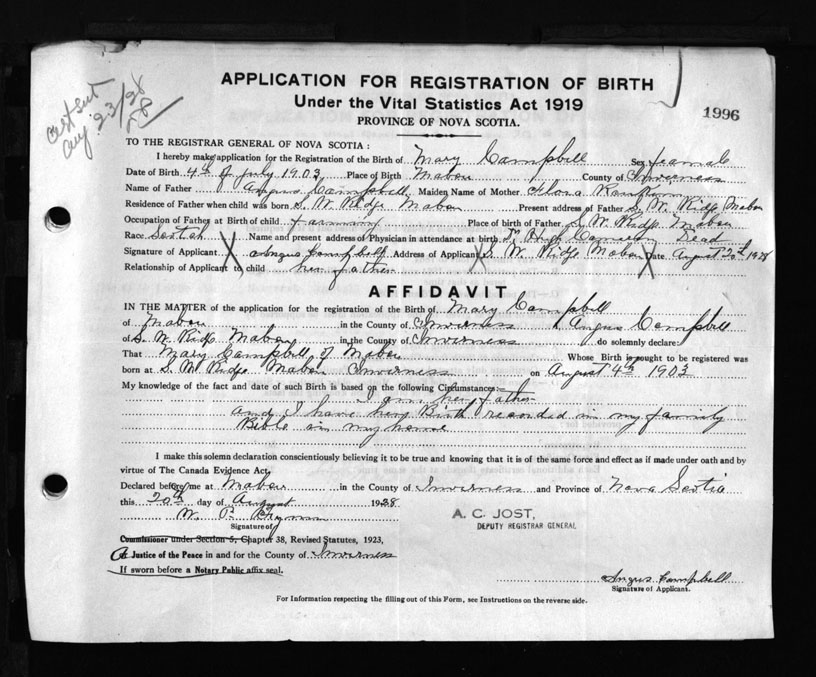 Cert sent
Aug. 23/28
APPLICATION FOR REGISTRATION OF BIRTH
Under the Vital Statistics Act 1919
PROVINCE OF NOVA SCOTIA.
1996
TO THE REGISTRAR GENERAL OF NOVA SCOTIA:
I hereby make application for the Registration of the Birth of Mary Campbell Sex female
Date of Birth 4th of July 1903 Place of Birth Mabou County of Inverness
Name of Father Angus Campbell Maiden Name of Mother Flora Rankin
Residence of Father when child was born S. W. Ridge Mabou Present address of Father S. W. Ridge Mabou
Occupation of Father at Birth of child farming Place of birth of Father S W Ridge Mabou
Race Scotch Name and present address of Physician in attendance at birth Dr Hugh Dead
Signature of Applicant Angus Campbell Address of Applicant S. W Ridge Mabou Date August 20th 1928
Relationship of Applicant to child her father
AFFIDAVIT
IN THE MATTER of the application for the registration of the Birth of Mary Campbell
of Mabou in the County of Inverness I, Angus Campbell
of S. W Ridge Mabou in the County of Inverness do solemnly declare:
That Mary Campbell of Mabou Whose Birth is sought to be registered was
born at S. W Ridge Mabou Inverness on August 4th 1903
My knowledge of the fact and date of such Birth is based on the following Circumstances:
I am her father
and I have her Birth recorded in my family
Bible in my home
I make this solemn declaration conscientiously believing it to be true and knowing that it is of the same force and effect as if made under oath and by
virtue of The Canada Evidence Act.
Declared before me at Mabou in the County of Inverness and Province of Nova Scotia
this 20th day of August 1928
W. P.
Signature of
A. C. JOST,
DEPUTY REGISTRAR GENERAL
Commissioner under Section 5, Chapter 38, Revised Statutes, 1923,
A Justice of the Peace in and for the County of Inverness
If sworn before a Notary Public affix seal.
Angus Campbell
Signature of Applicant.
For Information respecting the filling out of this Form, see Instructions on the reverse side.